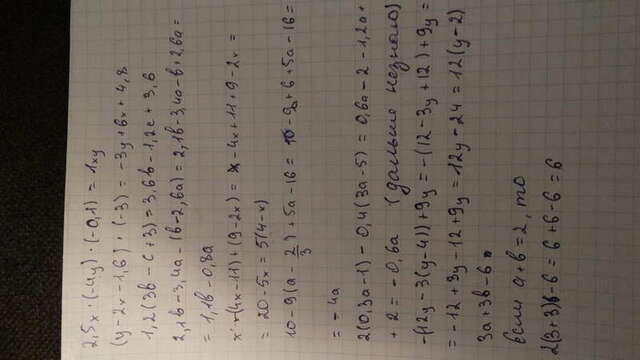 2,5x · (-4y) : (-0,1) = 1xy
(y - 2x - 1,6) · (-3) = -3y + 6x + 4,8
1,2(3b - c + 3) = 3,6b - 1,2c + 3,6
2,1b - 3,4a - (b - 2,6a) = 2,1b - 3,4a - b + 2,6a =
= 1,1b - 0,8a
x - (4x - 11) + (9 - 2x) = x - 4x + 11 + 9 - 2x =
= 20 - 5x = 5(4 - x)
10 - 9(a - 2/3) + 5a - 16 = 10 - 9a + 6 + 5a - 16 =
= -4a
2(0,3a - 1) - 0,4(3a - 5) = 0,6a - 2 - 1,2a +
+ 2 = -0,6a (дальше незнаю)
-(12y - 3(y - 4)) + 9y = -(12 - 3y + 12) + 9y =
= -12 + 3y - 12 + 9y = 12y - 24 = 12(y - 2)
3a + 3b - 6
если a + b = 2, то
2(3 + 3) - 6 = 6 + 6 - 6 = 6